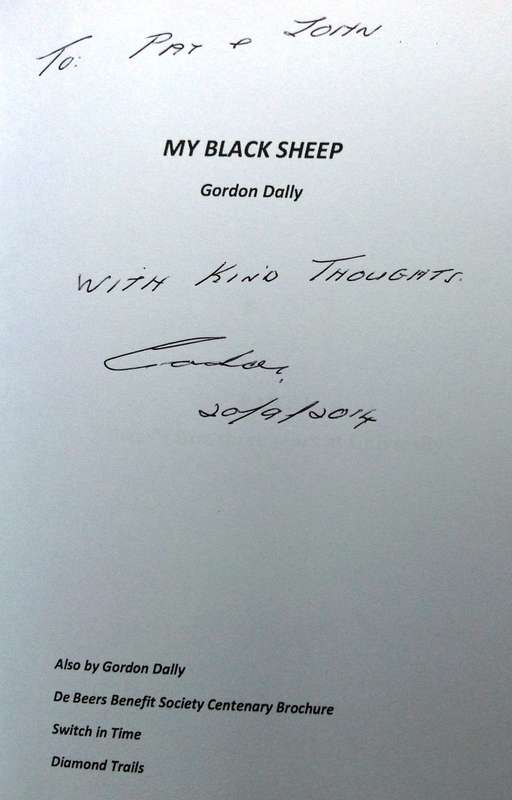 To: PAT & JOHN
MY BLACK SHEEP
Gordon Dally
WITH KIND THOUGHTS.
20/9/2014
Also by Gordon Dally
De Beers Benefit Society Centenary Brochure
Switch in Time
Diamond Trails